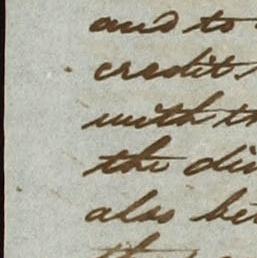 and to
credit
with th
the di
also be
the